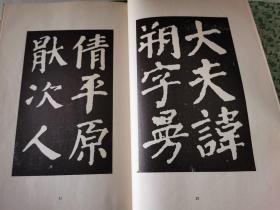 大夫諱
朔字曼
倩平原
猒次人